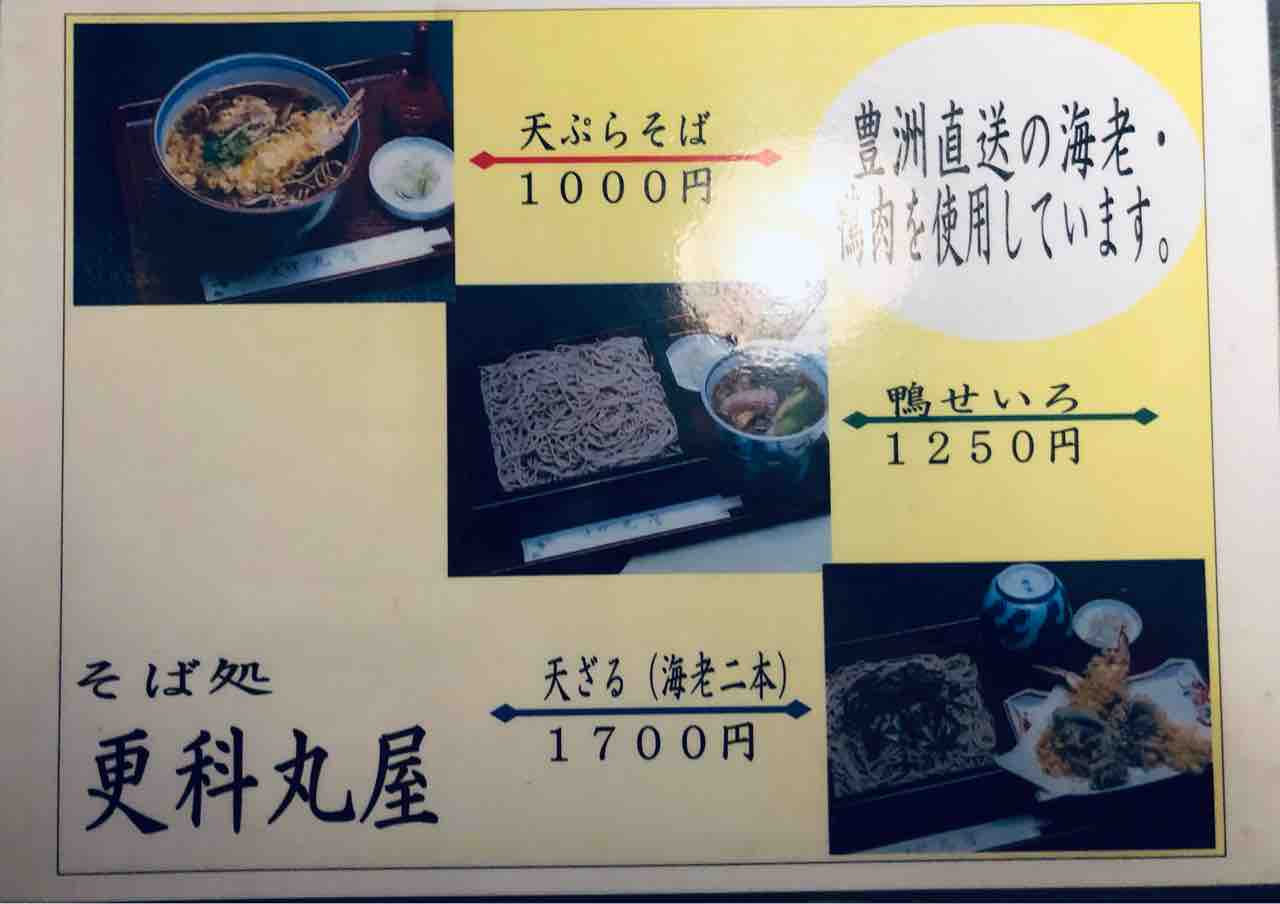 天ぷらそば
１０００円
豊洲直送の海老・
鴨肉を使用しています。
鴨せいろ
１２５０円
天ざる（海老二本）
１７００円
そば処
更科丸屋